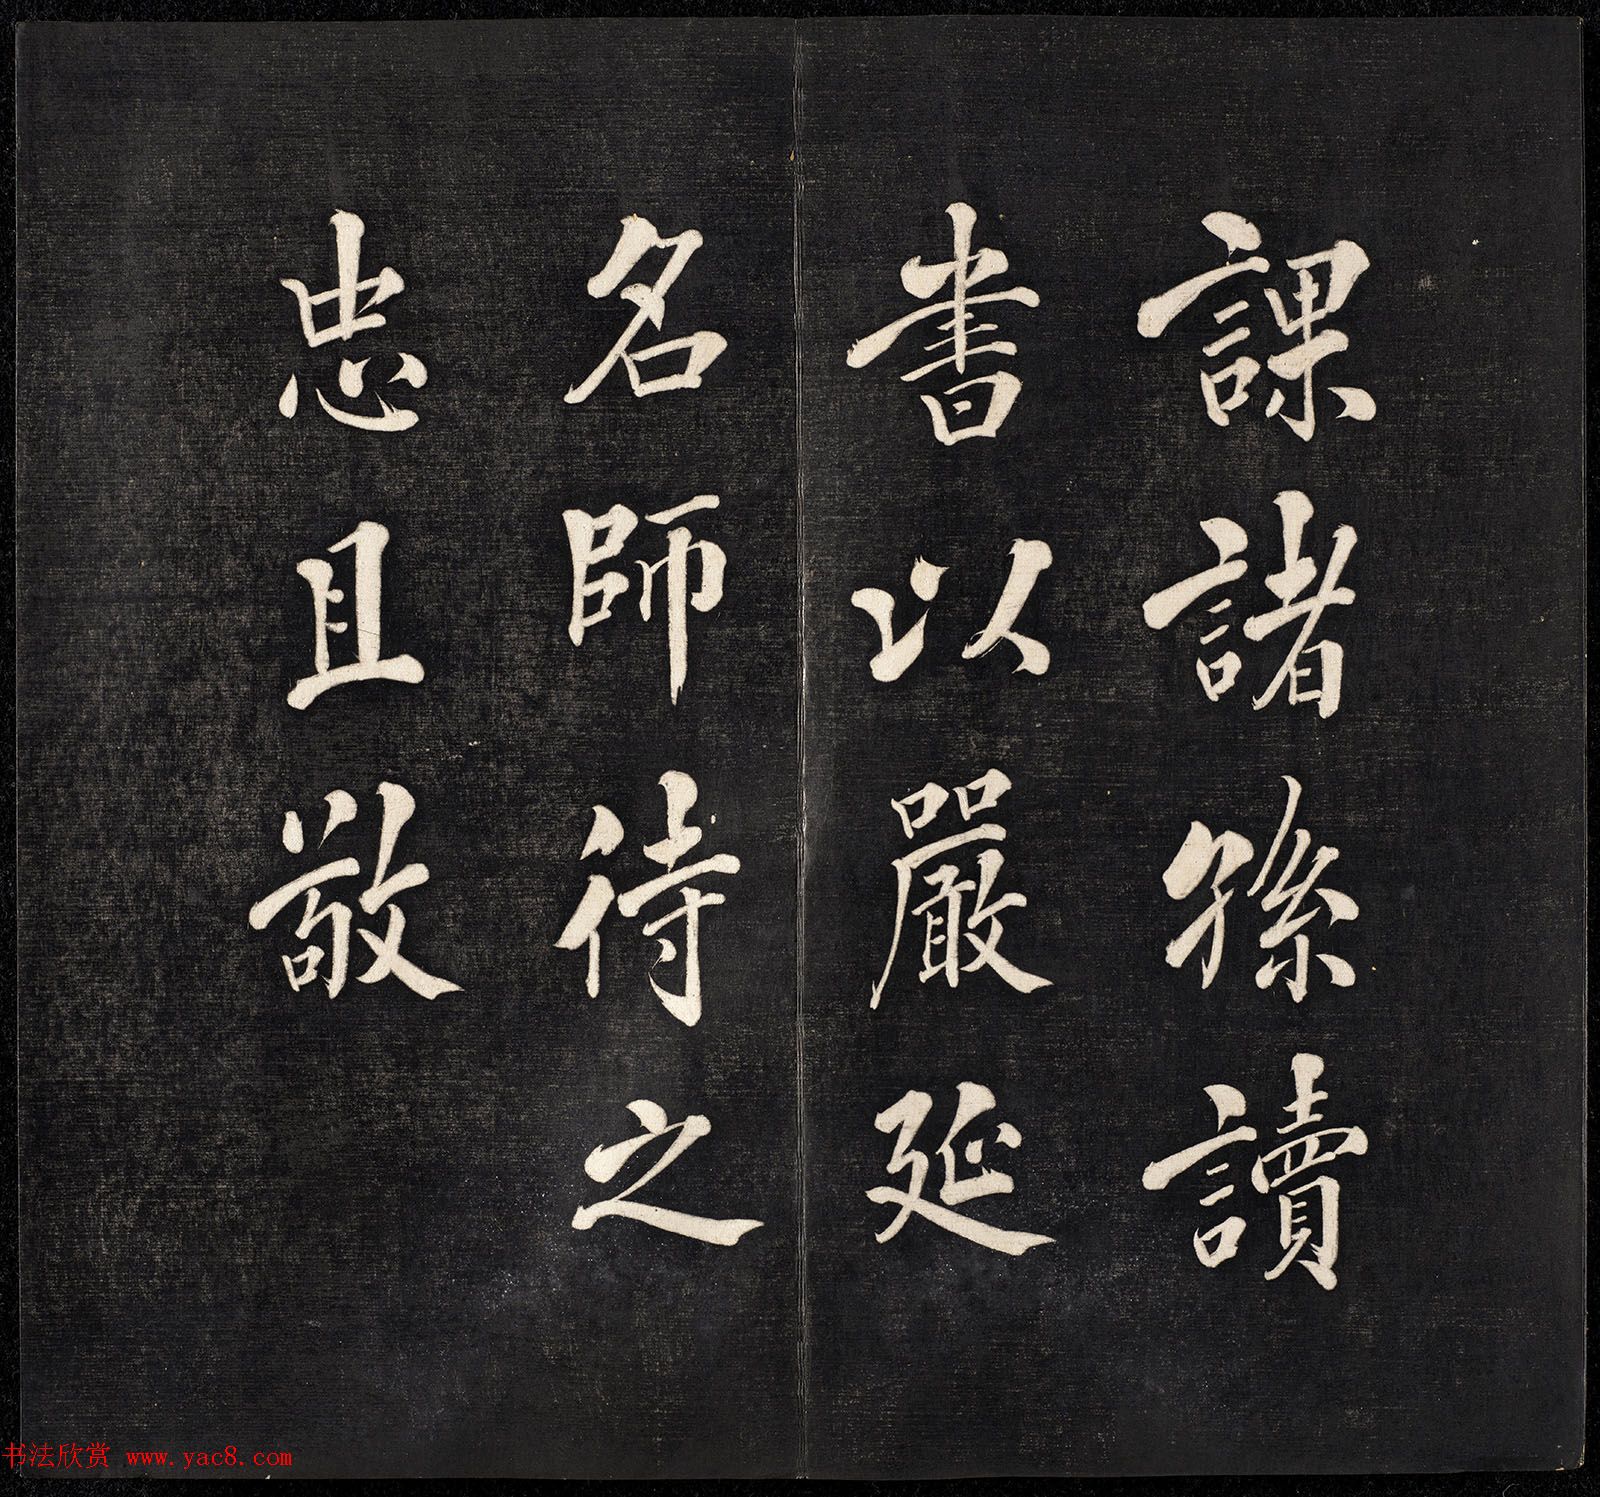 課諸孫讀
書以嚴延
名師待之
忠且敬
书法欣赏 www.yac8.com